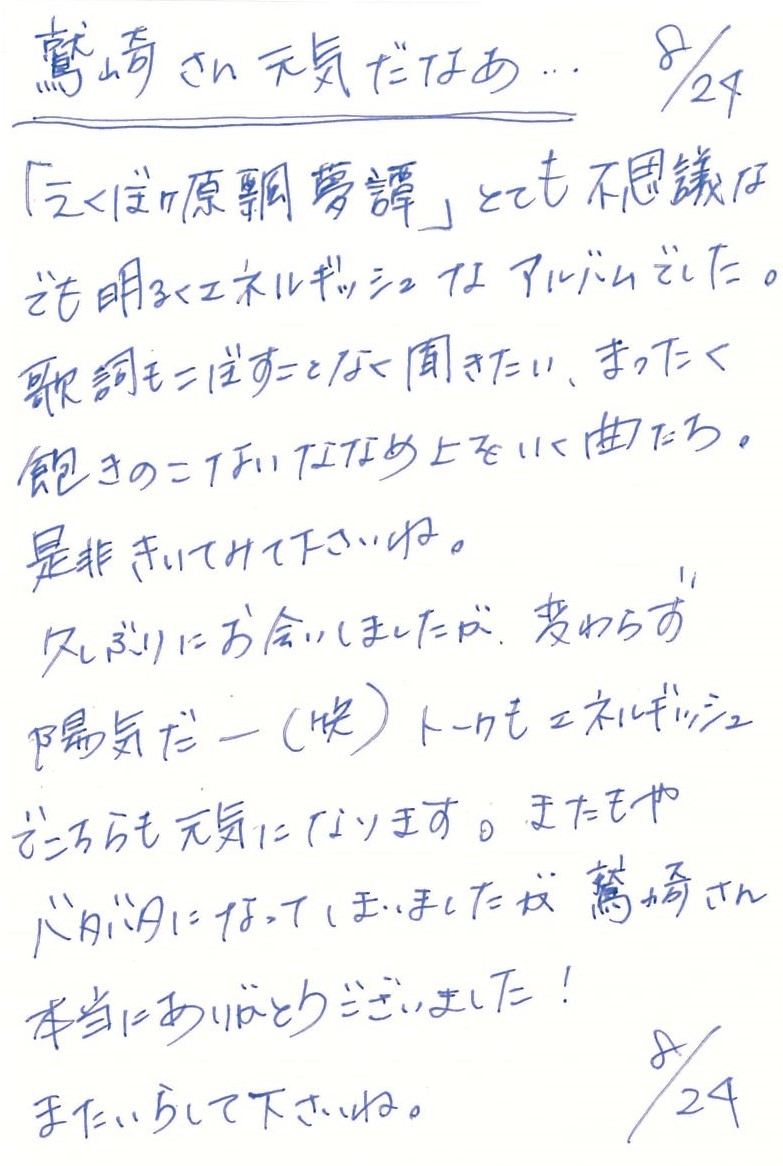 鷲崎さん元気だなあ… 8/24
「えくぼヶ原飄夢譚」とても不思議な
でも明るくエネルギッシュなアルバムでした。
歌詞もこぼすことなく聞きたい、まったく
飽きのこないななめ上をいく曲たち。
是非きいてみて下さいね。
久しぶりにお会いしましたが、変わらず
陽気だー(笑)トークもエネルギッシュ
でこちらも元気になります。またもや
バタバタになってしまいましたが鷲崎さん
本当にありがとうございました!
またいらして下さいね。 8/24